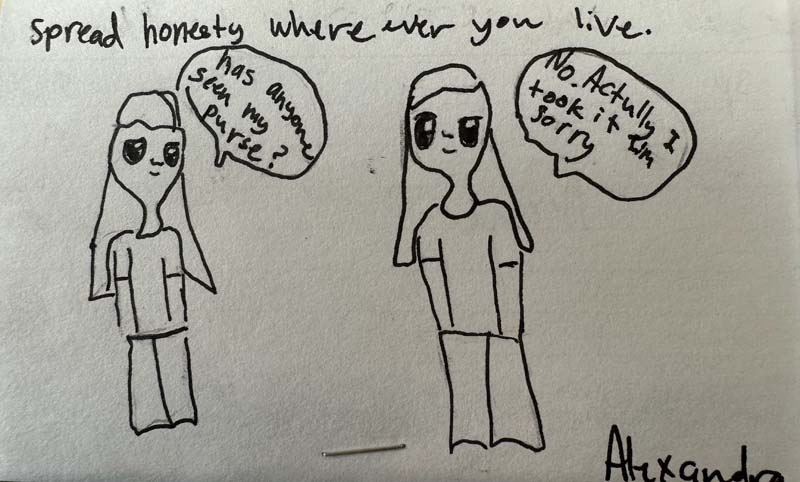 Spread honesty where ever you live.
has anyone
seen my
purse?
No. Actully I
took it I'm
sorry
Alexandra